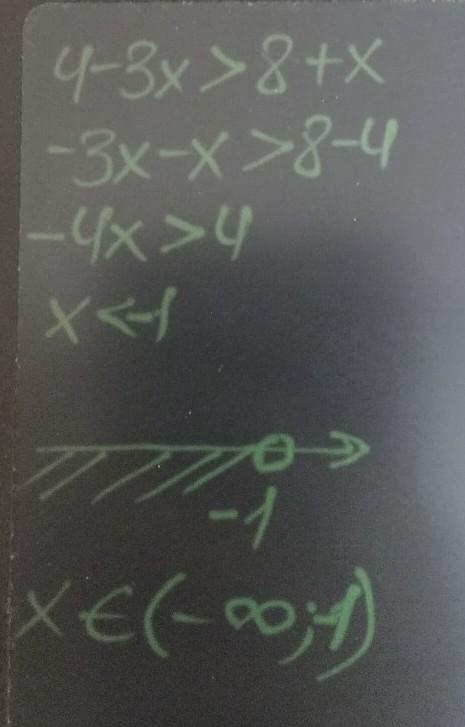 4-3x>8+x
-3x-x>8-4
-4x>4
x<-1
-1
x∈(-∞;-1)